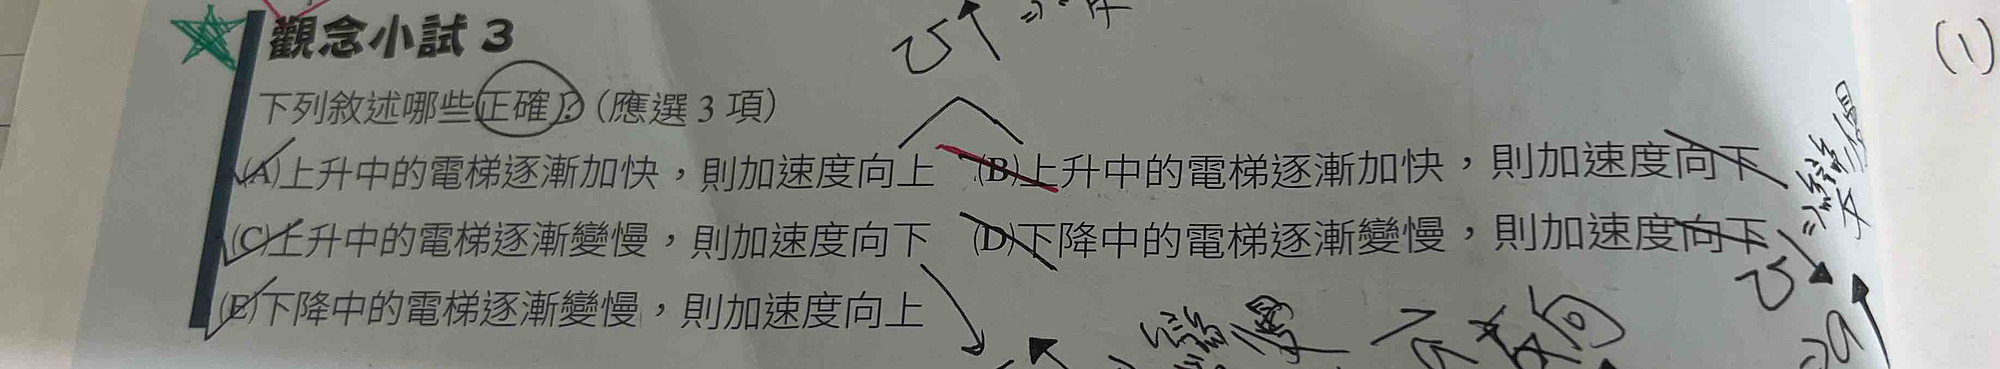 觀念小試 3
下列敘述哪些正確？（應選 3 項）
(A)上升中的電梯逐漸加快，則加速度向上 (B)上升中的電梯逐漸加快，則加速度向下
(C)上升中的電梯逐漸變慢，則加速度向下 (D)下降中的電梯逐漸變慢，則加速度向下
(E)下降中的電梯逐漸變慢，則加速度向上
(1)
⇒變慢
變慢